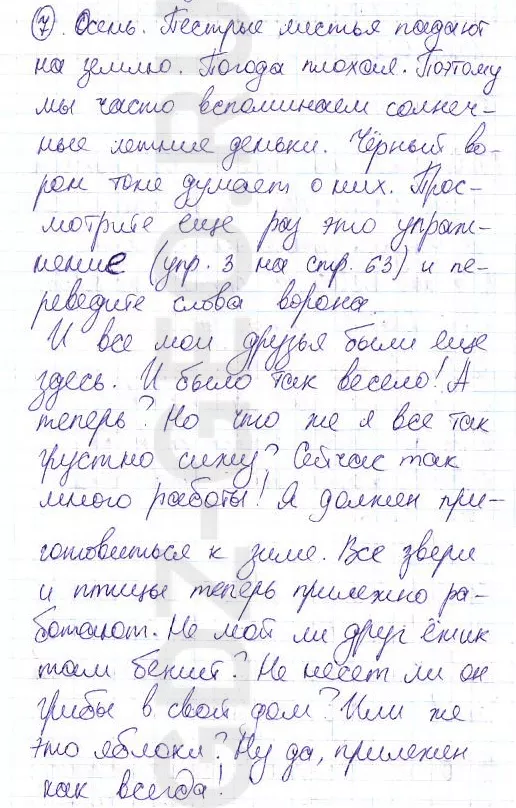 7. Осень. Пестрые листья падают
на землю. Погода плохая. Поэтому
мы часто вспоминаем солнеч-
ные летние деньки. Чёрный во-
рон тоже думает о них. Прос-
мотрите еще раз это упраж-
нение (упр. 3 на стр. 63) и пе-
реведите слова ворона.
И все мои друзья были еще
здесь. И было так весело! А
теперь? Но что же я все так
грустно сижу? Сейчас так
много работы! Я должен при-
готовиться к зиме. Все звери
и птицы теперь прилежно ра-
ботают. Не мой ли друг ёжик
там бежит? Не несет ли он
грибы в свой дом? Или же
это яблоки? Ну да, прилежен
как всегда!
GDZ-GEO.RU